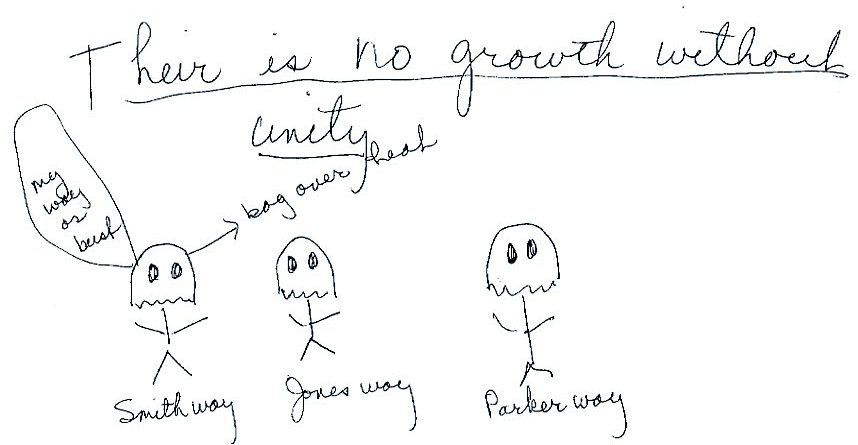 Their is no growth without
unity
my
way
or
bust
bag over head
Smith way
Jones way
Parker way